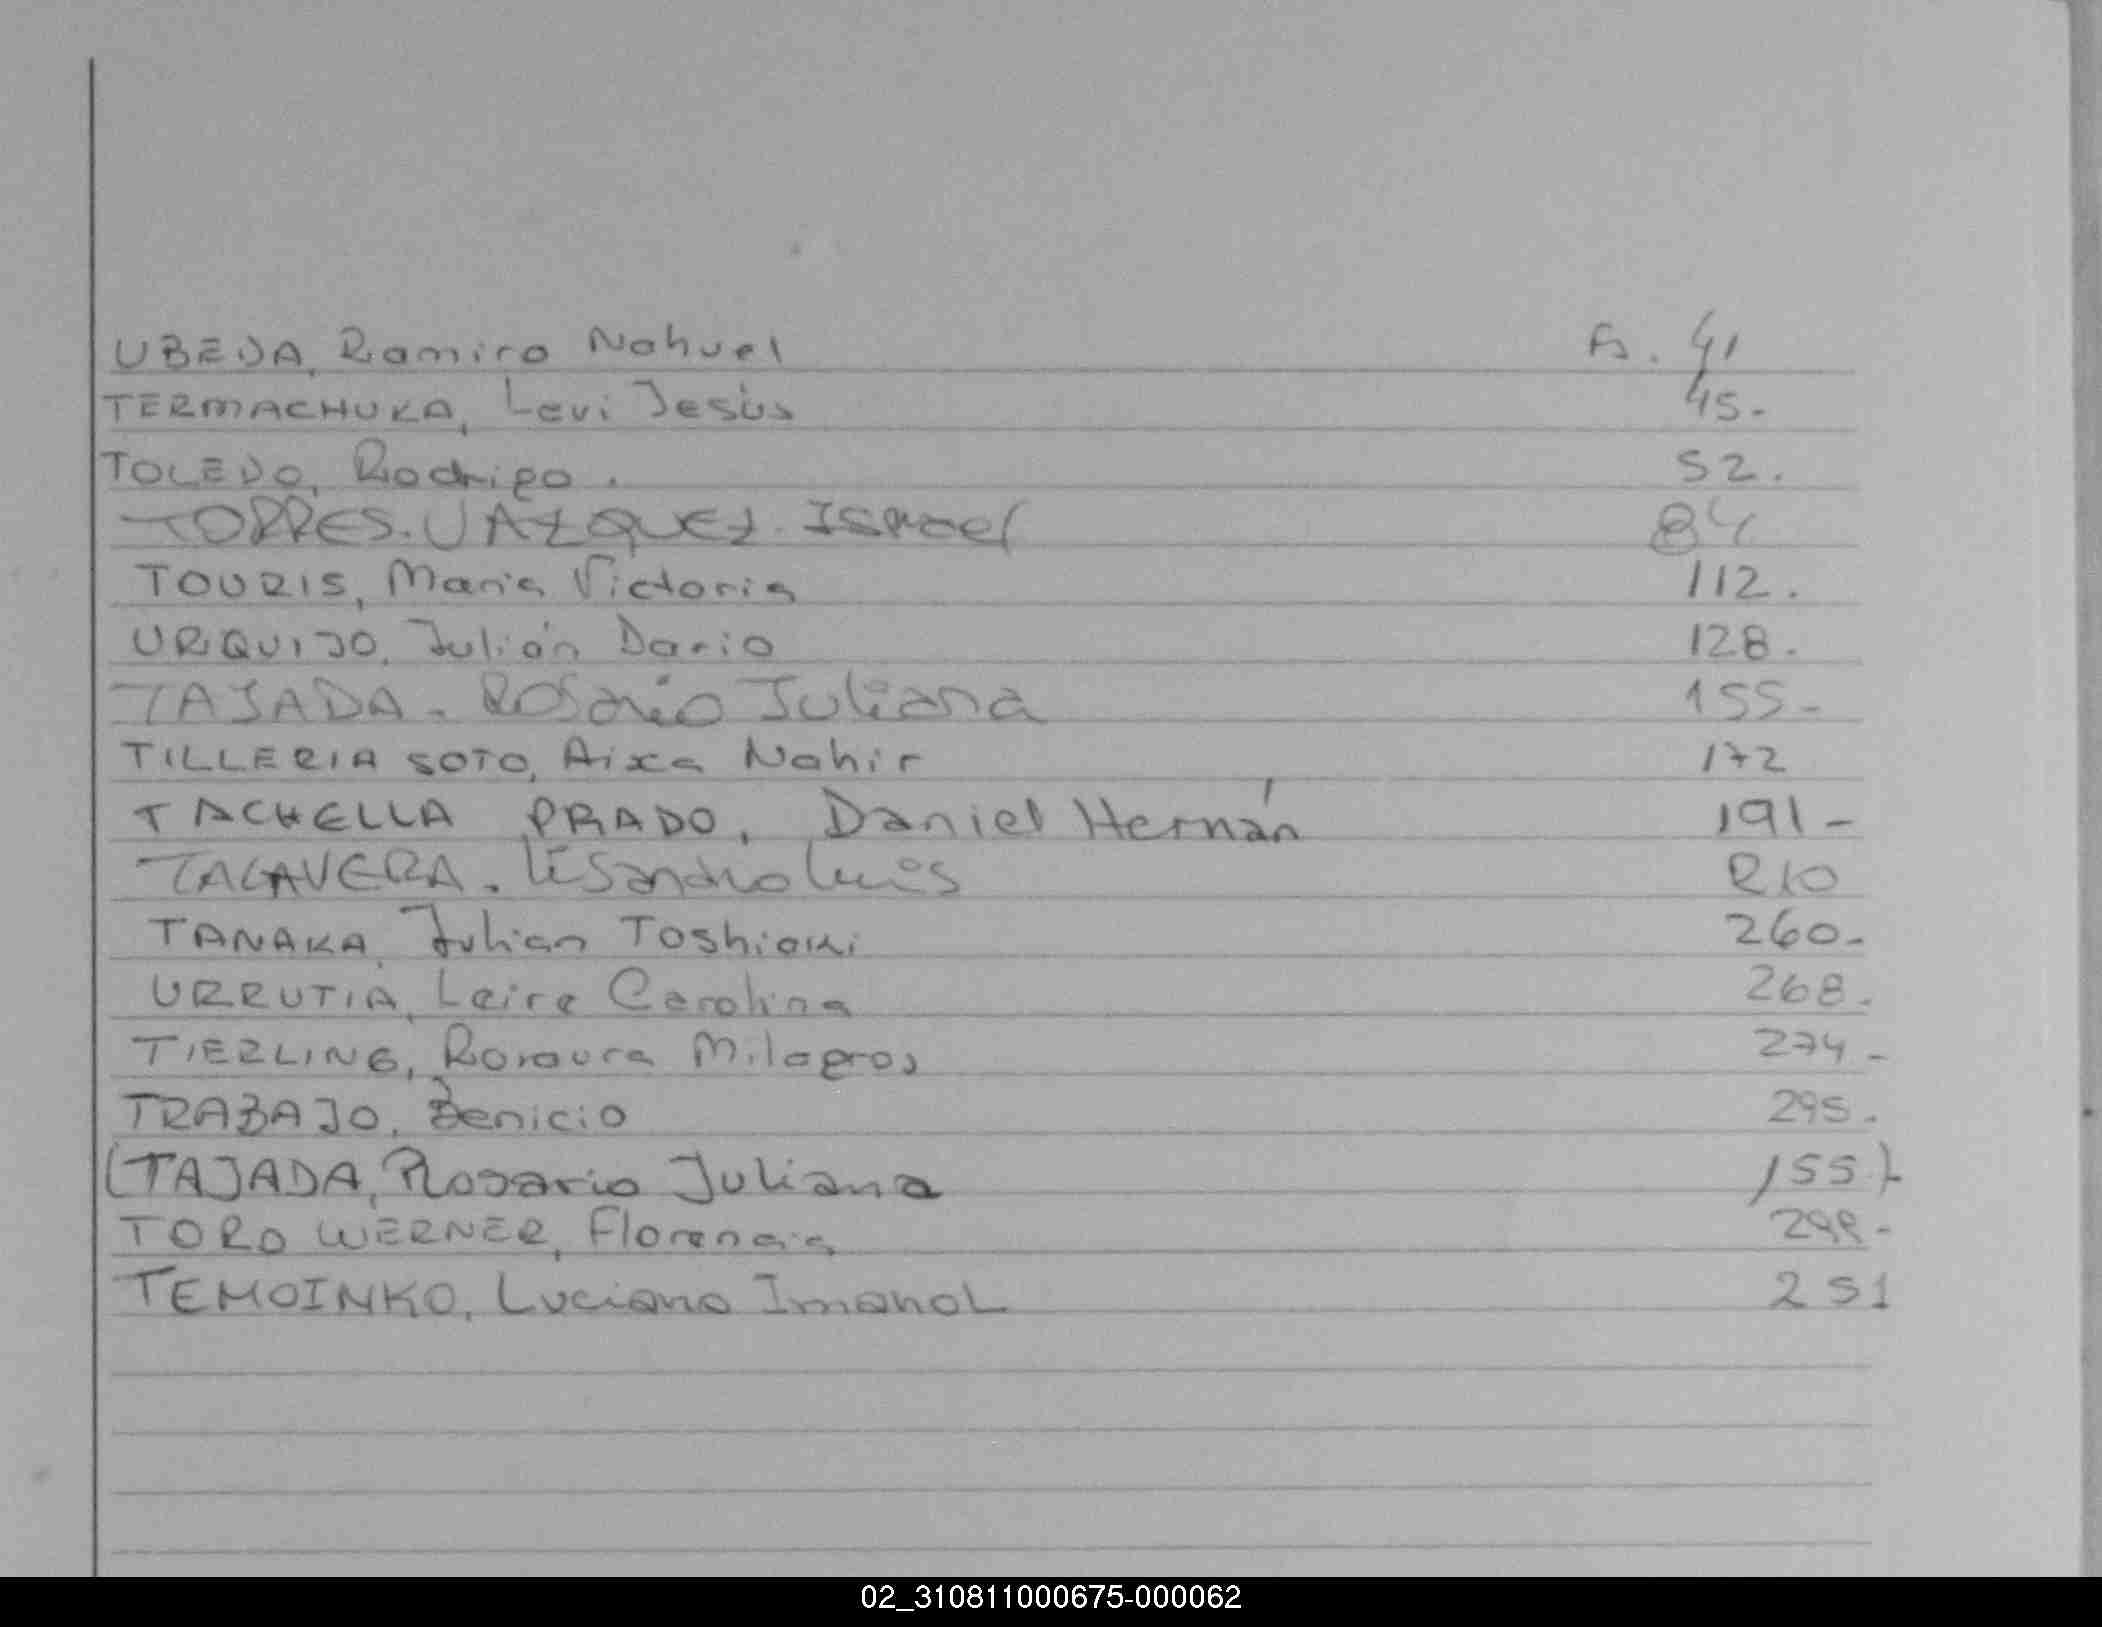 UBEDA, Ramiro Nahuel Fs. 41
TERMACHUKA, Levi Jesús 45-
TOLEDO, Rodrigo. 52.
TORRES. VAZQUEZ. Israel 84
TOURIS, María Victoria 112.
URQUIJO, Julián Dario 128.
TAJADA. Rosario Juliana 155-
TILLERIA SOTO, Aixa Nahir 172
TACHELLA PRADO, Daniel Hernán 191-
TALAVERA. Lisandro Luis 210
TANAKA, Julian Toshiaki 260-
URRUTIA, Leire Carolina 268.
TIERLING, Milagros 274-
TRABAJO, Benicio 295.
(TAJADA, Rosario Juliana 155)-
TORO WERNER, Florencia
TEMOINKO, Luciano Imanol 251
02_310811000675-000062